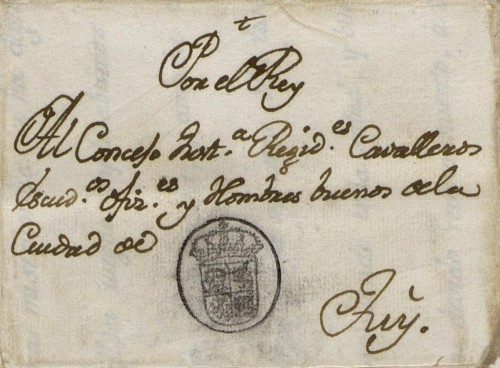 Por el Rey
Al Concejo Just.a Regid.es Cavalleros
Escud.os ofiz.es y Hombres buenos de la
Ciudad de
Tuy.